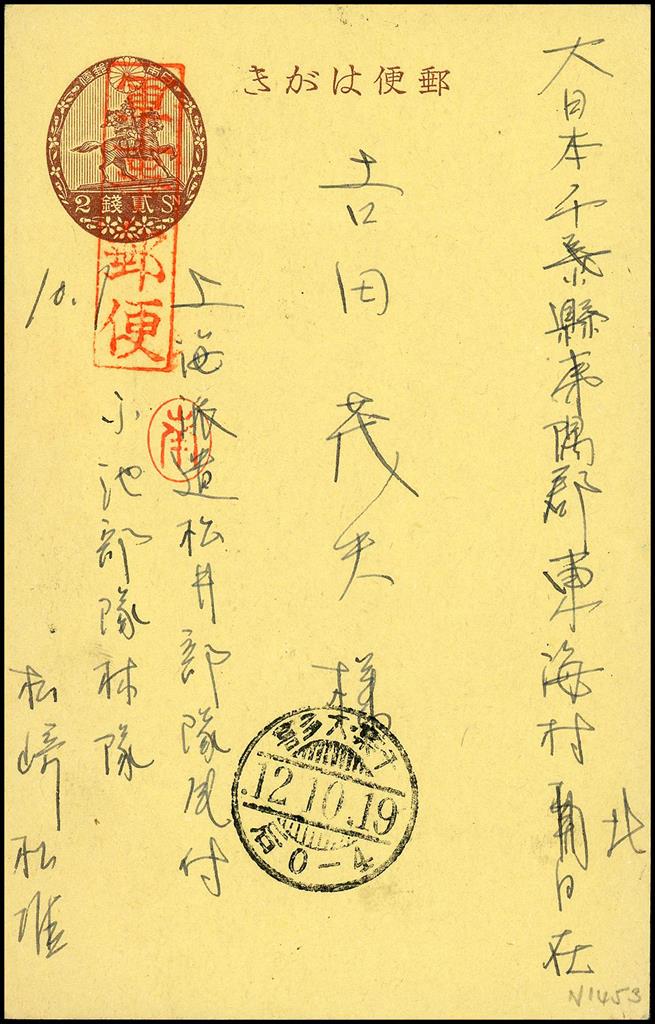 郵便はがき
大日本千葉縣夷隅郡東海村
北日在
吉田茂夫様
上海派遣松井部隊気付
小池部隊林隊
松崎松雄
10.9
軍事郵便
2 錢貳 SN
南
12.10.19
后0-4
N1453